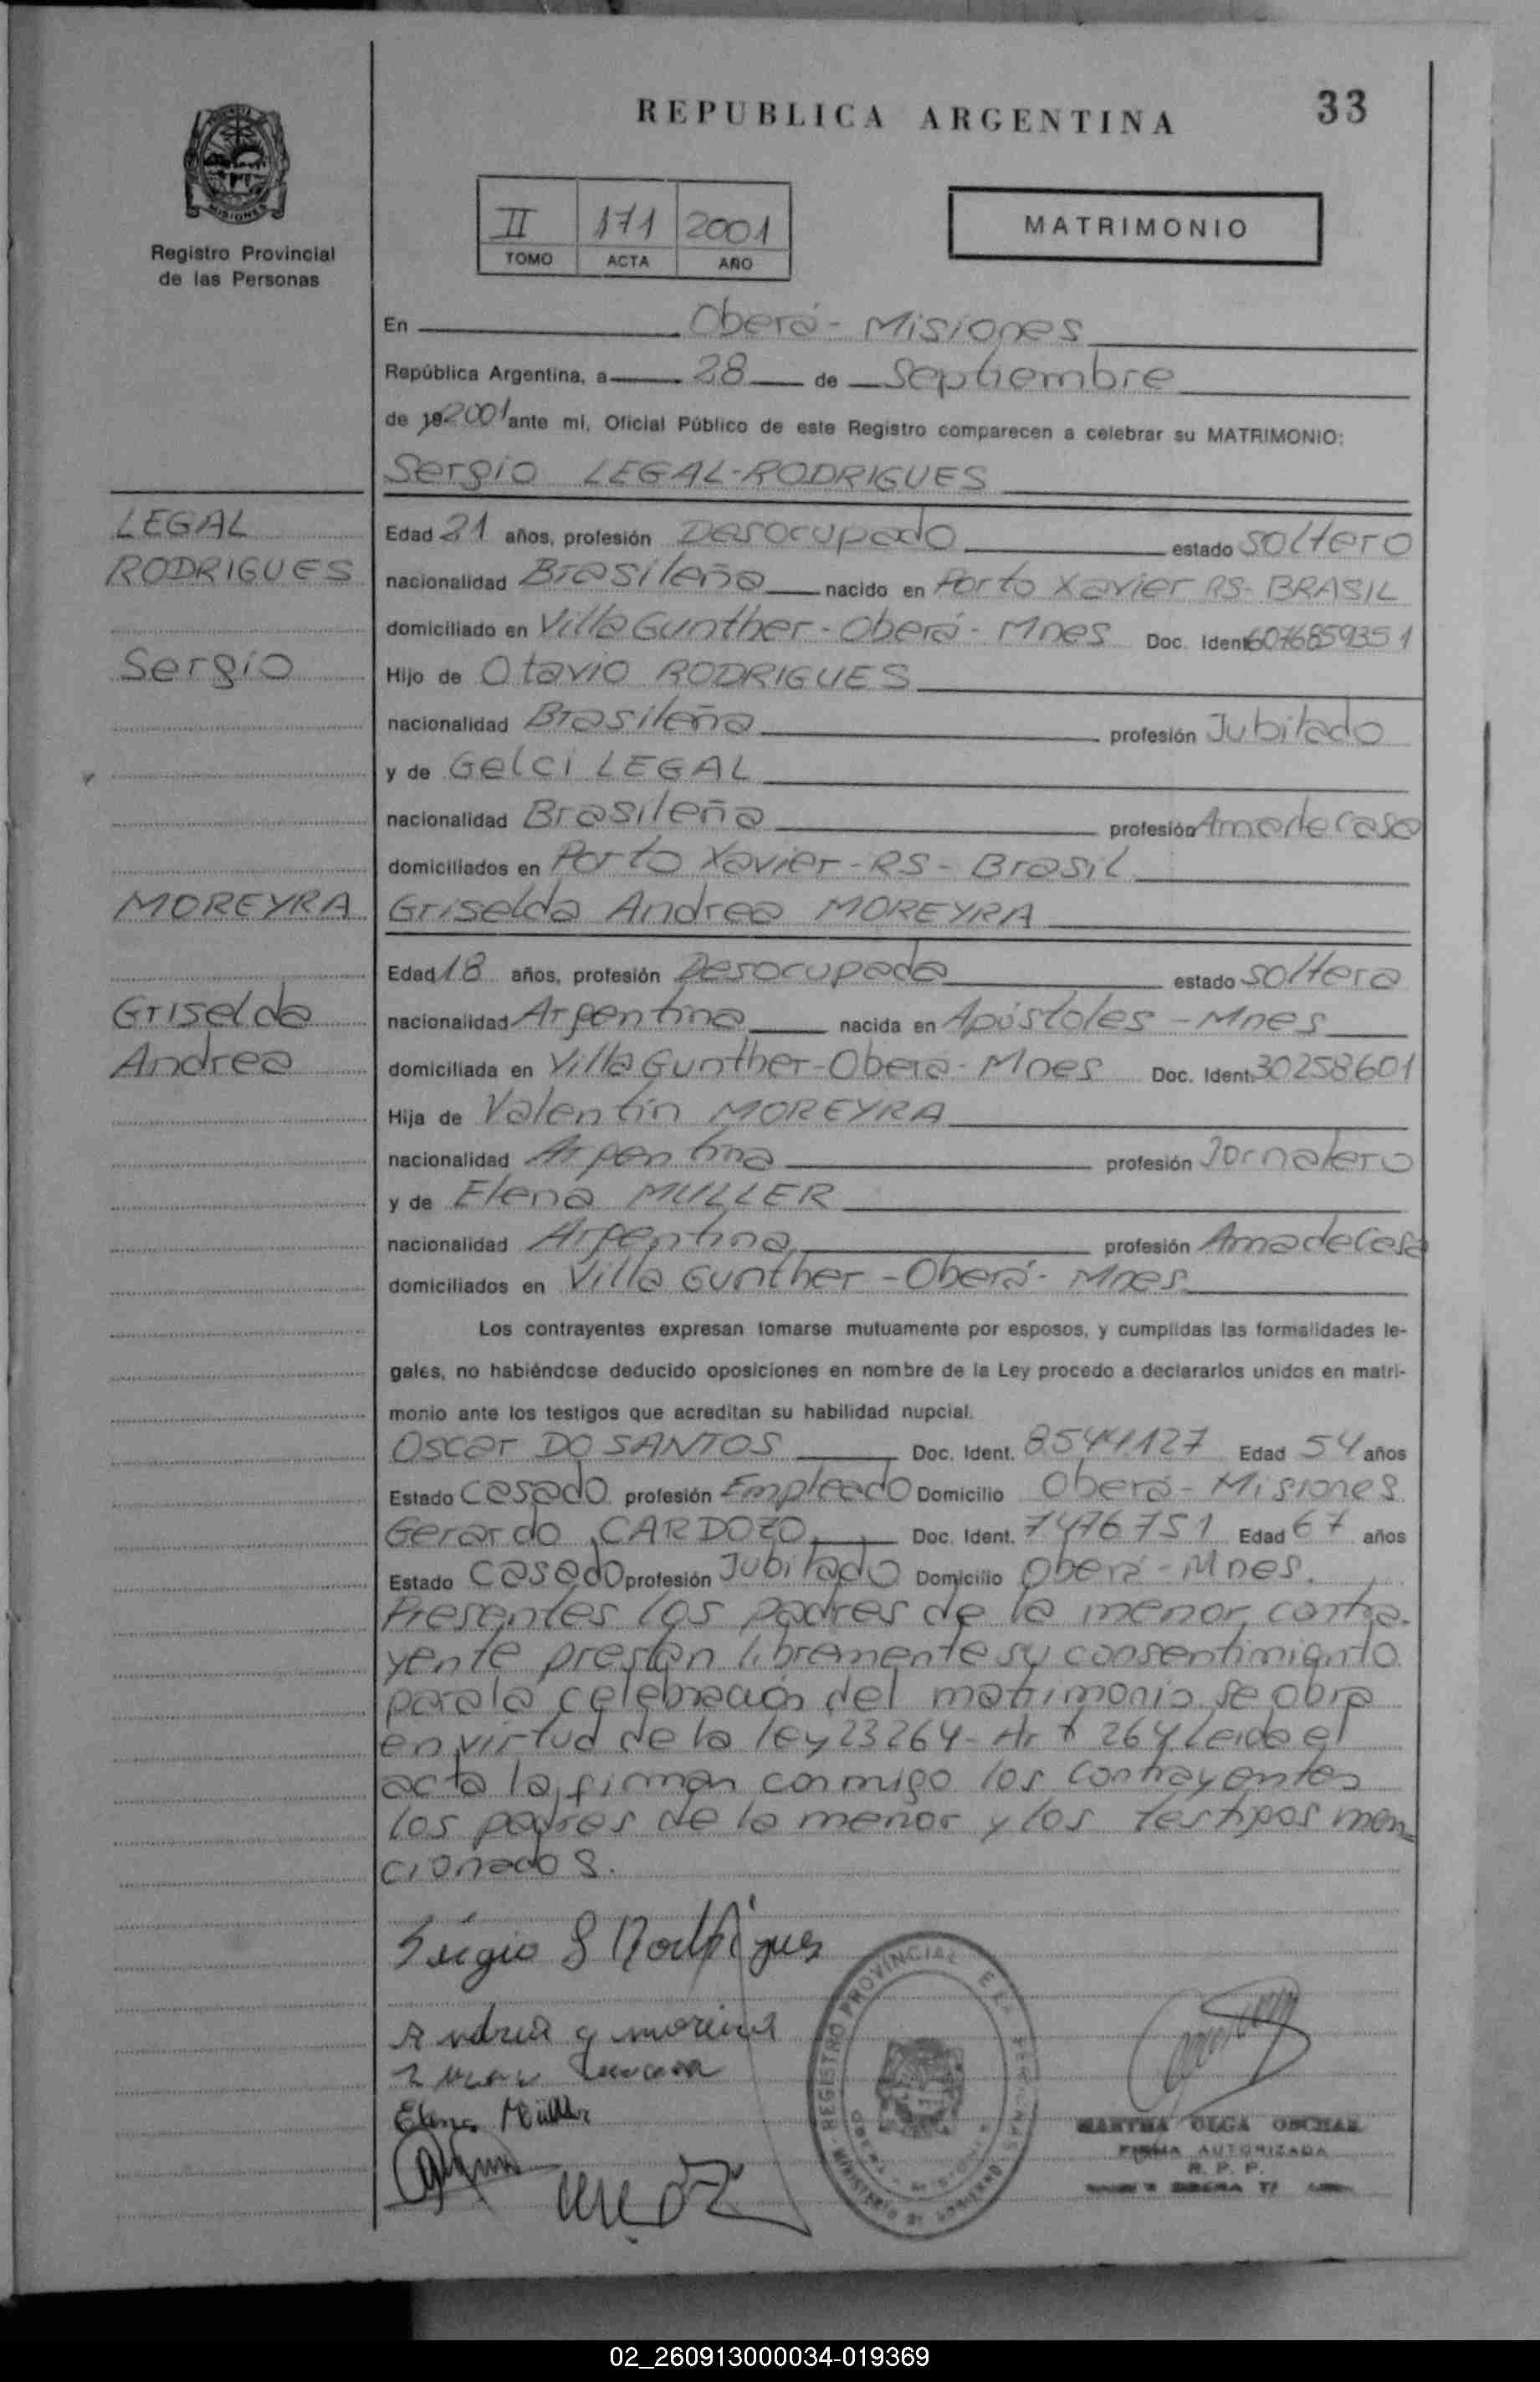 REPUBLICA ARGENTINA
33
MISIONES
Registro Provincial
de las Personas
II 171 2001
TOMO ACTA AÑO
MATRIMONIO
En Oberá - Misiones
República Argentina, a 28 de Septiembre
de 19 2001 ante mí, Oficial Público de este Registro comparecen a celebrar su MATRIMONIO:
Sergio LEGAL-RODRIGUES
LEGAL
RODRIGUES
Sergio
Edad 21 años, profesión Desocupado estado soltero
nacionalidad Brasileña nacido en Porto Xavier RS- BRASIL
domiciliado en Villa Gunther - Oberá - Mnes Doc. Ident. 6076859351
Hijo de Otavio RODRIGUES
nacionalidad Brasileña profesión Jubilado
y de Gelci LEGAL
nacionalidad Brasileña profesión Ama de casa
domiciliados en Porto Xavier - RS - Brasil
MOREYRA
Griselda Andrea MOREYRA
Griselda
Andrea
Edad 18 años, profesión Desocupada estado soltera
nacionalidad Argentina nacida en Apóstoles - Mnes
domiciliada en Villa Gunther - Oberá - Mnes Doc. Ident. 30258601
Hija de Valentín MOREYRA
nacionalidad Argentina profesión Jornalero
y de Elena MULLER
nacionalidad Argentina profesión Ama de Casa
domiciliados en Villa Gunther - Oberá - Mnes
Los contrayentes expresan tomarse mutuamente por esposos, y cumplidas las formalidades le-
gales, no habiéndose deducido oposiciones en nombre de la Ley procedo a declararlos unidos en matri-
monio ante los testigos que acreditan su habilidad nupcial.
Oscar DO SANTOS Doc. Ident. 8544127 Edad 54 años
Estado Casado profesión Empleado Domicilio Oberá - Misiones
Gerardo CARDOZO Doc. Ident. 7476751 Edad 67 años
Estado Casado profesión Jubilado Domicilio Oberá - Mnes.
Presentes los padres de la menor contra-
yente prestan libremente su consentimiento
para la celebración del matrimonio se obra
en virtud de la ley 23264 - Art 264 Leída el
acta la firman conmigo los contrayentes
los padres de la menor y los testigos men-
cionados.
Sérgio S Rodrigues
Elena Müller
REGISTRO PROVINCIAL DE LAS PERSONAS
MINISTERIO DE GOBIERNO
MARTHA OLGA
FIRMA AUTORIZADA
R. P. P.
02_260913000034-019369